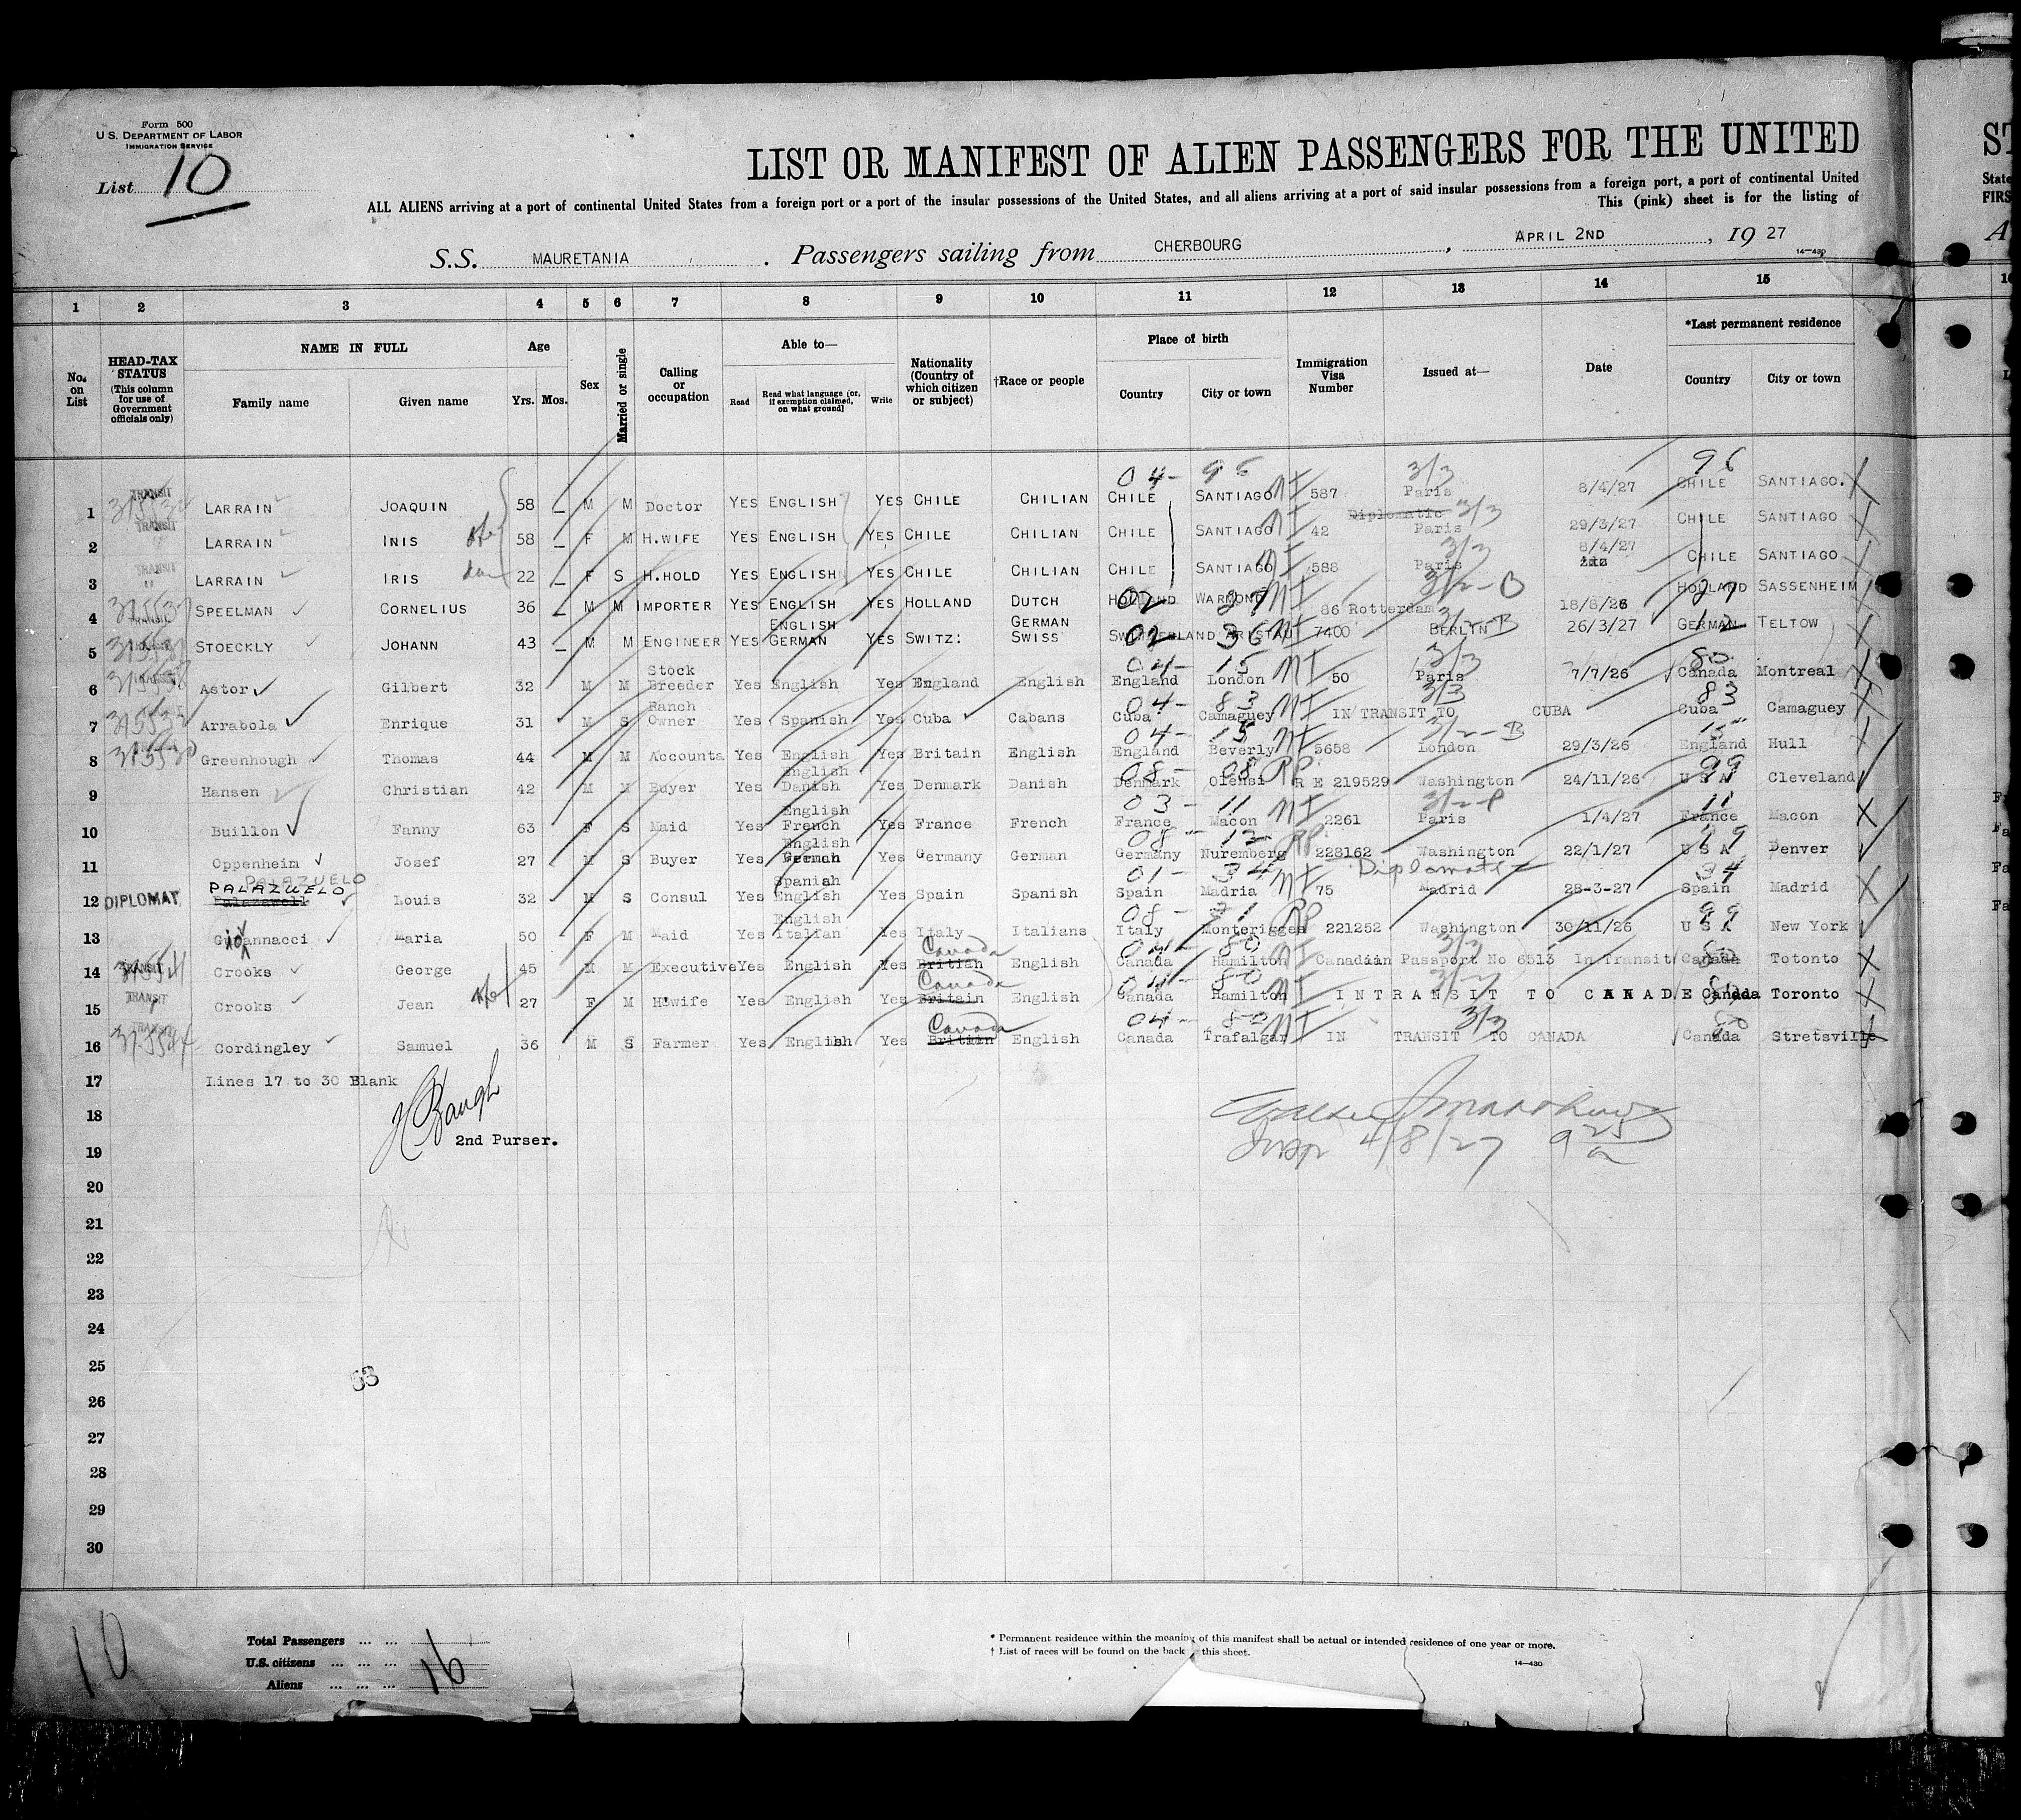 Form 500
U. S. DEPARTMENT OF LABOR
IMMIGRATION SERVICE
List 10
LIST OR MANIFEST OF ALIEN PASSENGERS FOR THE UNITED
ALL ALIENS arriving at a port of continental United States from a foreign port or a port of the insular possessions of the United States, and all aliens arriving at a port of said insular possessions from a foreign port, a port of continental United
This (pink) sheet is for the listing of
S.S. MAURETANIA . Passengers sailing from CHERBOURG , APRIL 2ND , 19 27
14—430
1 2 3 4 5 6 7 8 9 10 11 12 13 14 15
No. on List
HEAD-TAX STATUS (This column for use of Government officials only)
NAME IN FULL Family name Given name
Age Yrs. Mos.
Sex
Married or single
Calling or occupation
Able to— Read Read what language (or, if exemption claimed, on what ground) Write
Nationality (Country of which citizen or subject)
†Race or people
Place of birth Country City or town
Immigration Visa Number
Issued at—
Date
*Last permanent residence Country City or town
04- 96 3/3 96
1 TRANSIT LARRAIN JOAQUIN 58 M M Doctor YES ENGLISH YES CHILE CHILIAN CHILE SANTIAGO NI 587 Paris 8/4/27 CHILE SANTIAGO. X
Diplomatic 3/3
2 TRANSIT LARRAIN INIS 58 F M H.WIFE YES ENGLISH YES CHILE CHILIAN CHILE SANTIAGO NI 42 Paris 29/3/27 CHILE SANTIAGO X
3/3 8/4/27
3 TRANSIT " LARRAIN IRIS 22 F S H.HOLD YES ENGLISH YES CHILE CHILIAN CHILE SANTIAGO NI 588 Paris CHILE SANTIAGO X
3/2-B
4 SPEELMAN CORNELIUS 36 M M IMPORTER YES ENGLISH YES HOLLAND DUTCH HOLLAND 02 WARMOND 27 NI 86 Rotterdam 18/8/26 HOLLAND 27 SASSENHEIM
ENGLISH GERMAN 3/2-B
5 STOECKLY JOHANN 43 M M ENGINEER YES GERMAN YES SWITZ: SWISS SWITZERLAND 02 36 NI 7400 BERLIN 26/3/27 GERMAN 12 TELTOW X
Stock 04- 15 3/3 80
6 Astor Gilbert 32 M M Breeder Yes English Yes England English England London NI 50 Paris 7/7/26 Canada Montreal X
Ranch 04- 83 3/3 83
7 Arrabola Enrique 31 M S Owner Yes Spanish Yes Cuba Cabans Cuba Camaguey NI IN TRANSIT TO CUBA Cuba Camaguey X
04- 15 3/2-B 15
8 Greenhough Thomas 44 M M Accounta Yes English Yes Britain English England Beverly NI 5658 London 29/3/26 England Hull X
English 08- 08 RP 99
9 Hansen Christian 42 M M Buyer Yes Danish Yes Denmark Danish Denmark Ofensi R E 219529 Washington 24/11/26 U S A Cleveland
English 03- 11 3/2-P 11
10 Buillon Fanny 63 F S Maid Yes French Yes France French France Macon NI 2261 Paris 1/4/27 France Macon X
English 08- 12 RP 99
11 Oppenheim Josef 27 M S Buyer Yes Yes Germany German Germany Nuremberg 228162 Washington 22/1/27 U S A Denver
PALAZUELO Spanish 01- 34 Diplomatic 34
12 DIPLOMAT PALAZUELO Louis 32 M S Consul Yes English Yes Spain Spanish Spain Madria NI 75 Madrid 28-3-27 Spain Madrid X
English 08- 31 RP 99
13 Giovannacci Maria 50 F M Maid Yes Italian Yes Italy Italians Italy Monteriggea 221252 Washington 30/11/26 U S A New York
Canada 04- 80 3/3
14 TRANSIT Crooks George 45 M M Executive Yes English Yes Britian English Canada Hamilton NI Canadian Passport No 6513 In Transit Canada 80 Totonto X
Canada 04- 80 3/2
15 TRANSIT Crooks Jean 27 F M H.wife Yes English Yes Britain English Canada Hamilton NI IN TRANSIT TO CANADE Canada Toronto X
Canada 04- 80 3/3 80
16 TRANSIT Cordingley Samuel 36 M S Farmer Yes English Yes Britain English Canada Trafalgar NI IN TRANSIT TO CANADA Canada Stretsville
17 Lines 17 to 30 Blank
18
2nd Purser.
Insp 4/8/27 9 25 a
19
20
21
22
23
24
25
26
27
28
29
30
10
Total Passengers ... ...
U.S. citizens ... ... ...
Aliens ... ... ... 16
* Permanent residence within the meaning of this manifest shall be actual or intended residence of one year or more.
† List of races will be found on the back this sheet.
14—430